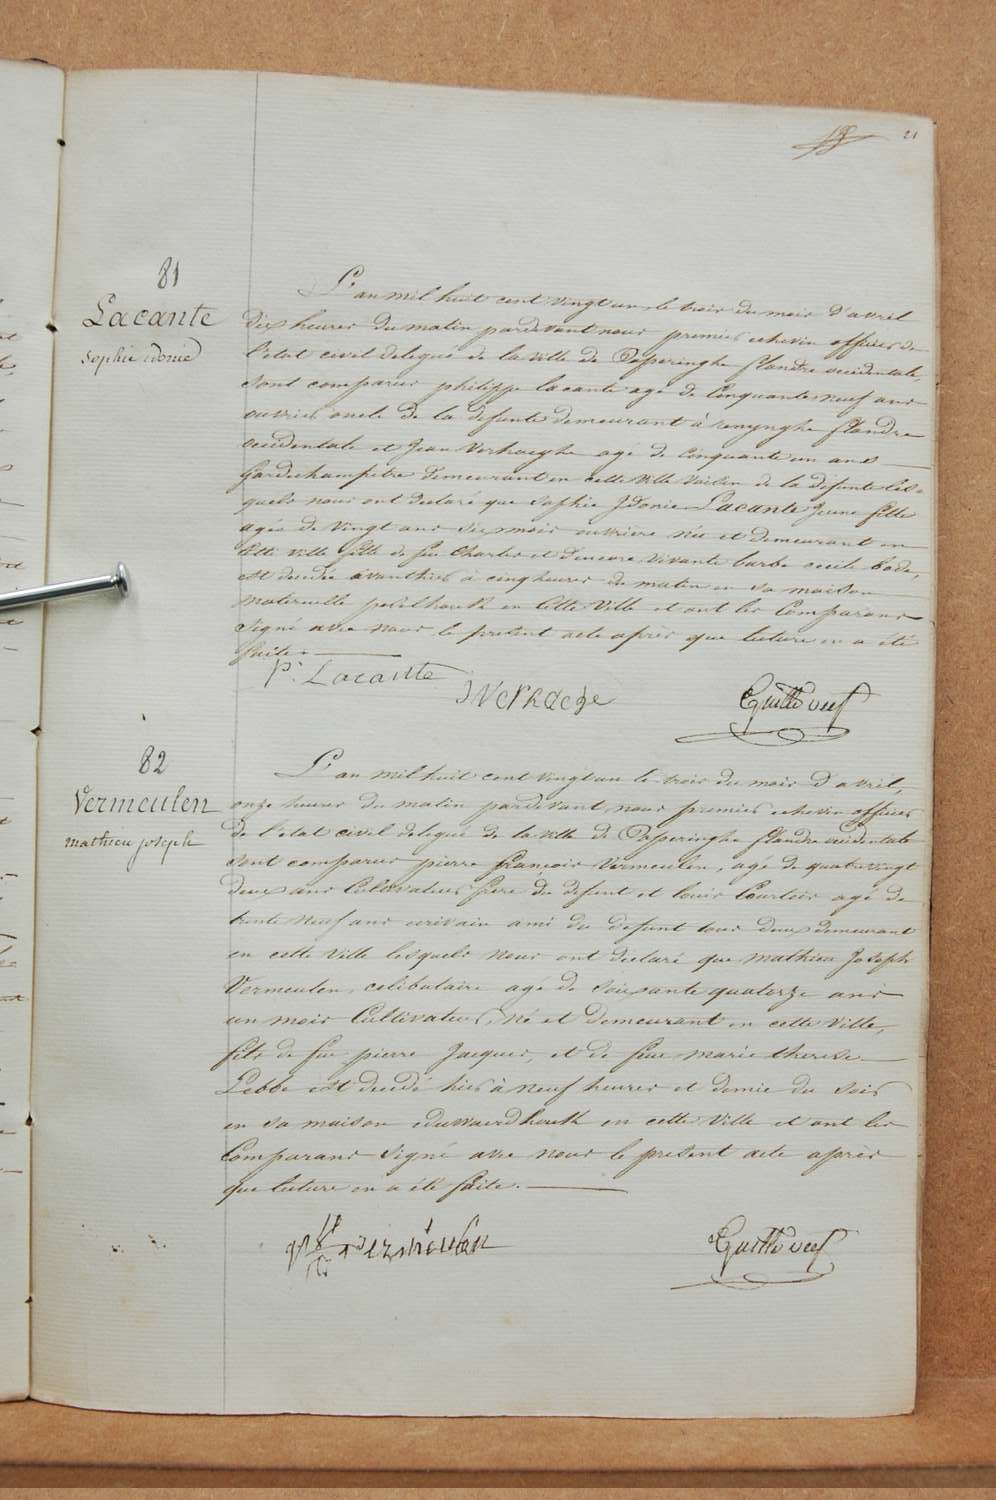 21
81
Lacante
Sophie idonie
L'an mil huit cent vingt un, le trois du mois d'avril
dix heures du matin pardevant nous premier echevin officier de
l'etat civil delegué de la ville de Poperinghe flandre occidentale,
sont comparus philippe lacante agé de Cinquante neuf ans
ouvrier oncle de la defunte demeurant à flandre
occidentale et Jean Verhaeghe agé de cinquante un ans
Gardechampetre demeurant en cette ville voisin de la defunte les-
quels nous ont declaré que Sophie Idonie Lacante Jeune fille
agée de vingt ans six mois ouvrière née et demeurant en
cette ville fille de feu Charles et d'encore vivante barbe cecile
est decedée avanthier à cinq heures du matin en sa maison
maternelle en Cette Ville et ont les Comparans
signé avec nous le present acte après que lecture en a été
faite.
P: Lacante
J Verhaeghe
82
Vermeulen
mathieu joseph
L'an mil huit cent vingt un le trois du mois d'avril,
onze heures du matin pardevant nous premier echevin officier
de l'etat civil delegué de la ville de Poperinghe flandre occidentale
sont comparus pierre françois Vermeulen, agé de quatrevingt
deux ans Cultivateur frere du defunt et louis Courtois agé de
trente neuf ans ecrivain ami du defunt tous deux demeurant
en cette ville lesquels nous ont declaré que mathieu Joseph
Vermeulen, celibataire agé de soixante quatorze ans
un mois Cultivateur, né et demeurant en cette ville,
fils de feu pierre Jacques, et de feue marie therese
Lebbe est decedé hier à neuf heures et demie du soir
en sa maison en cette ville et ont les
Comparans signé avec nous le present acte après
que lecture en a été faite.